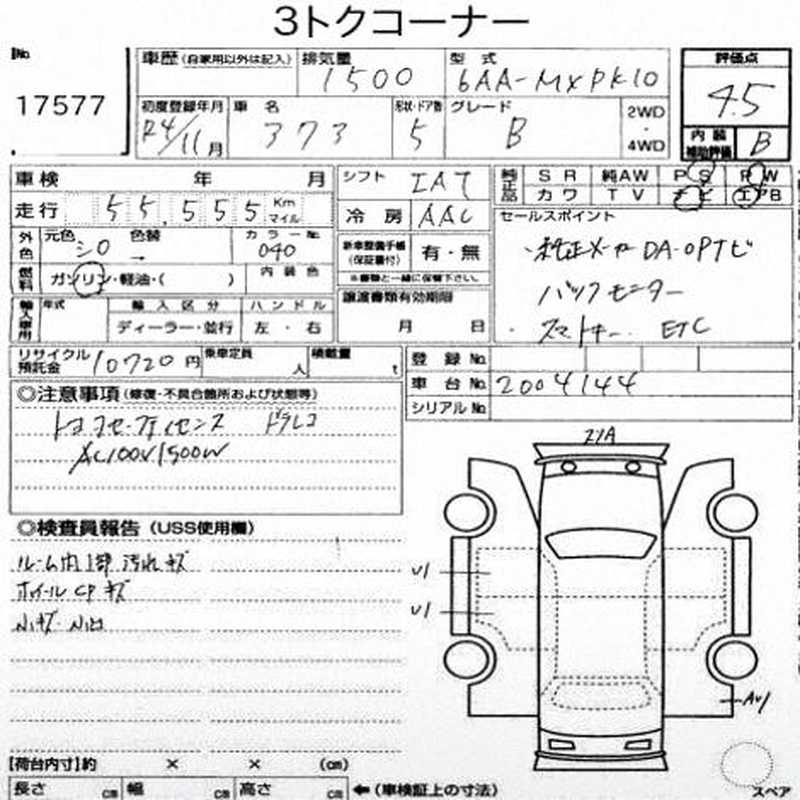 3トクコーナー
No.
17577
車歴(自家用以外は記入)
排気量
1500
型式
6AA-MXPK10
評価点
4.5
初度登録年月
R4/11月
車名
373
形状・ドア数
5
グレード
B
2WD
・
4WD
内装
補助評価
B
車検 年 月
シフト
IAT
純正品
SR 純AW PS PW
カワ TV ナビ エアB
走行 55,555 Km マイル
冷房
AAC
セールスポイント
外色
元色
シロ
色替
→
カラーNo.
040
新車整備手帳
(保証書付)
有・無
※書類と一緒に保管下さい。
・純正メーカーDA-OPナビ
燃料
ガソリン・軽油・( )
内装色
バックモニター
輸入車用
年式
輸入区分
ディーラー・並行
ハンドル
左・右
譲渡書類有効期限
月 日
・スマートキー. ETC
リサイクル預託金 10720円
乗車定員 人
積載量 t
登録No.
車台No. 2004144
シリアルNo.
◎注意事項(修復・不具合箇所および状態等)
トヨタセーフティセンス ドラレコ
AC100V1500W
◎検査員報告(USS使用欄)
ルーム内上部 汚れキズ
ホイールCPキズ
小キズ.小凹
U1
U1
AW1
スペア
[荷台内寸]約 × × (cm)
長さ cm 幅 cm 高さ cm ←(車検証上の寸法)